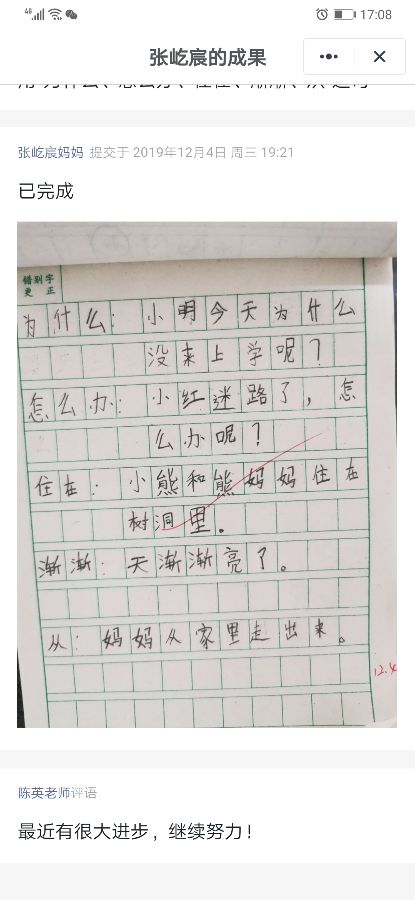 46
17:08
张屹宸的成果
用"为什么、怎么办、住在、渐渐、从"造句
张屹宸妈妈 提交于 2019年12月4日 周三 19:21
已完成
错别字
更 正
为什么：小明今天为什么
没来上学呢？
怎么办：小红迷路了，怎
么办呢？
住在：小熊和熊妈妈住在
树洞里。
渐渐：天渐渐亮了。
从：妈妈从家里走出来。
12.4
陈英老师评语
最近有很大进步，继续努力！